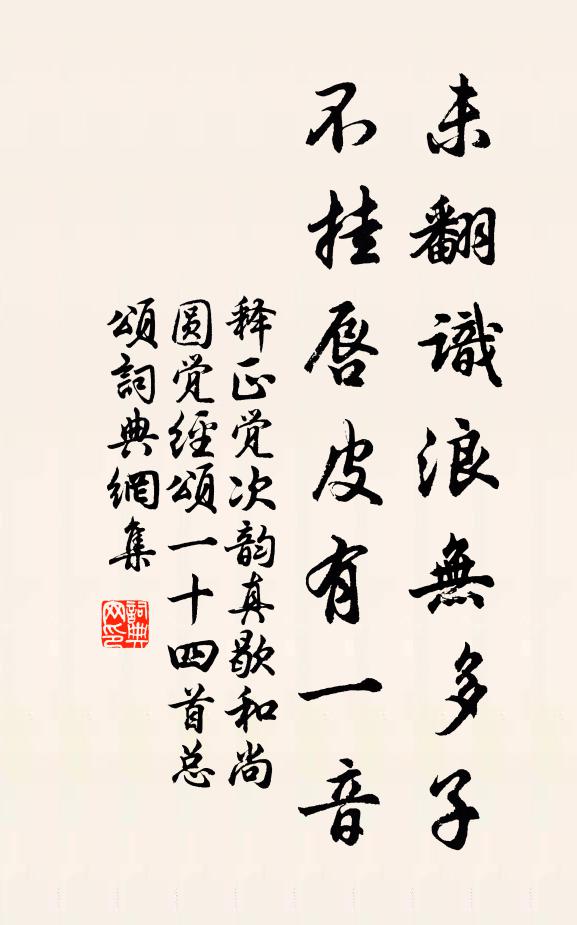 未翻識浪無多子
不挂唇皮有一音
释正觉次韵真歇和尚
圆觉經頌一十四首总
頌詞典網集
詞典
网印